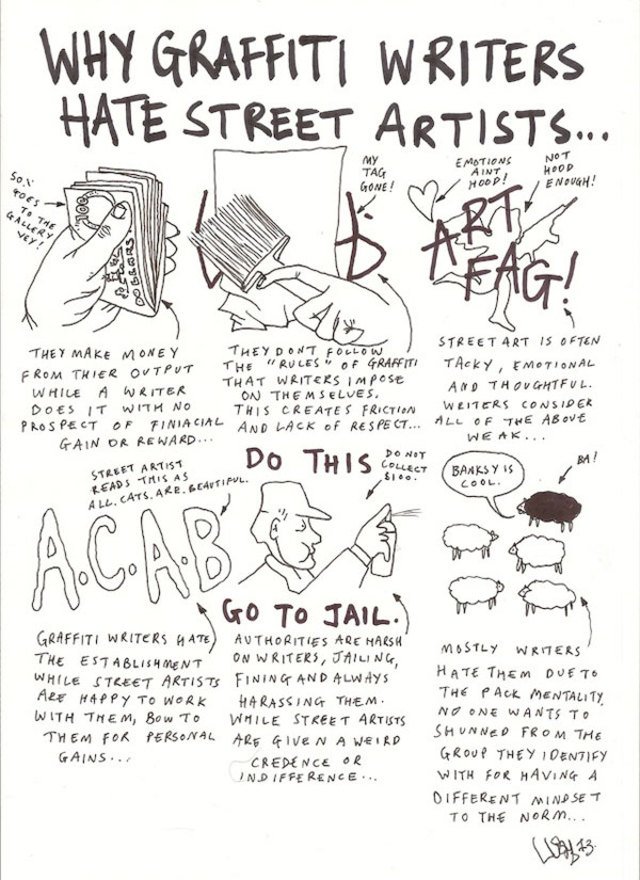 WHY GRAFFITI WRITERS
HATE STREET ARTISTS...
50%
GOES
TO THE
GALLERY
VEY!
100
DOLLARS
THEY MAKE MONEY
FROM THIER OUTPUT
WHILE A WRITER
DOES IT WITH NO
PROSPECT OF FINIACIAL
GAIN OR REWARD...
MY
TAG
GONE!
THEY DONT FOLLOW
THE "RULES" OF GRAFFITI
THAT WRITERS IMPOSE
ON THEMSELVES.
THIS CREATES FRICTION
AND LACK OF RESPECT...
EMOTIONS
AINT
HOOD!
NOT
HOOD
ENOUGH!
ART
FAG!
STREET ART IS OFTEN
TACKY, EMOTIONAL
AND THOUGHTFUL.
WRITERS CONSIDER
ALL OF THE ABOVE
WEAK...
STREET ARTIST
READS THIS AS
ALL. CATS. ARE. BEAUTIFUL.
A.C.A.B
GRAFFITI WRITERS HATE
THE ESTABLISHMENT
WHILE STREET ARTISTS
ARE HAPPY TO WORK
WITH THEM, BOW TO
THEM FOR PERSONAL
GAINS...
DO THIS
DO NOT
COLLECT
$100.
GO TO JAIL.
AUTHORITIES ARE HARSH
ON WRITERS, JAILING,
FINING AND ALWAYS
HARASSING THEM.
WHILE STREET ARTISTS
ARE GIVEN A WEIRD
CREDENCE OR
INDIFFERENCE...
BANKSY IS
COOL.
BA!
MOSTLY WRITERS
HATE THEM DUE TO
THE PACK MENTALITY.
NO ONE WANTS TO
SHUNNED FROM THE
GROUP THEY IDENTIFY
WITH FOR HAVING A
DIFFERENT MINDSET
TO THE NORM...